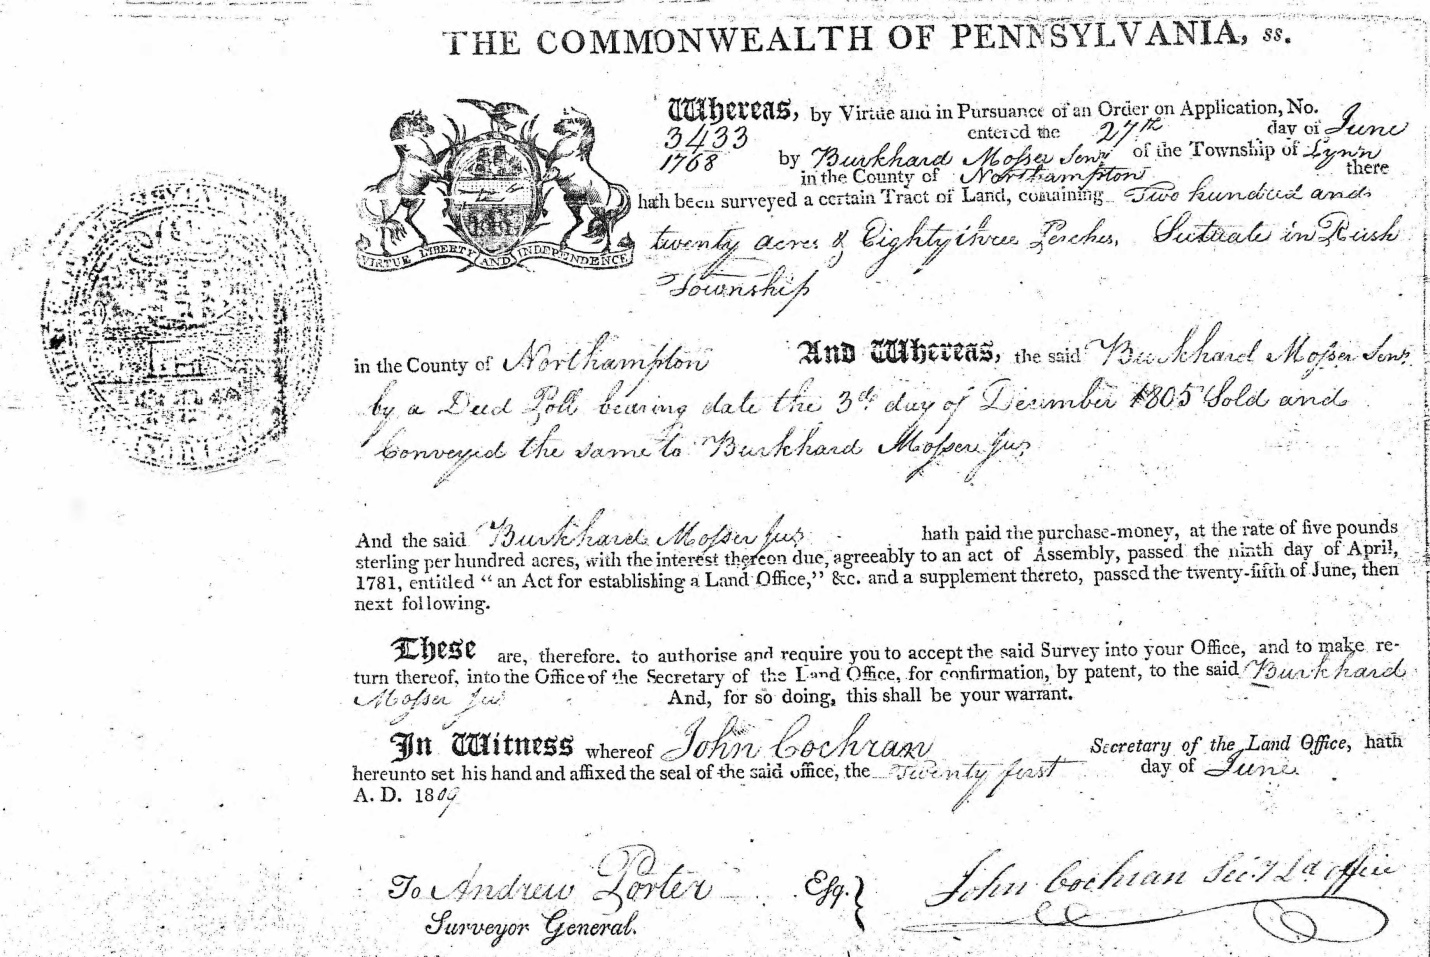 THE COMMONWEALTH OF PENNSYLVANIA, ss.
Whereas, by Virtue and in Pursuance of an Order on Application, No.
3433 entered the 27th day of June
1768 by Burkhard Mosser Senr of the Township of Lynn
in the County of Northampton there
hath been surveyed a certain Tract of Land, containing Two hundred and
twenty acres & Eighty three Perches, Situate in Rush
Township
VIRTUE LIBERTY AND INDEPENDENCE
in the County of Northampton And Whereas, the said Burkhard Mosser Senr
by a Deed Poll bearing date the 3d day of December 1805 Sold and
Conveyed the same to Burkhard Mosser Jur
And the said Burkhard Mosser Jur hath paid the purchase-money, at the rate of five pounds
sterling per hundred acres, with the interest thereon due, agreeably to an act of Assembly, passed the ninth day of April,
1781, entitled “an Act for establishing a Land Office,” &c. and a supplement thereto, passed the twenty-fifth of June, then
next following.
These are, therefore. to authorise and require you to accept the said Survey into your Office, and to make re-
turn thereof, into the Office of the Secretary of the Land Office, for confirmation, by patent, to the said Burkhard
Mosser Jur And, for so doing, this shall be your warrant.
In Witness whereof John Cochran Secretary of the Land Office, hath
hereunto set his hand and affixed the seal of the said office, the Twenty first day of June
A. D. 1809
To Andrew Porter Esq. John Cochran Secy Ld office
Surveyor General.